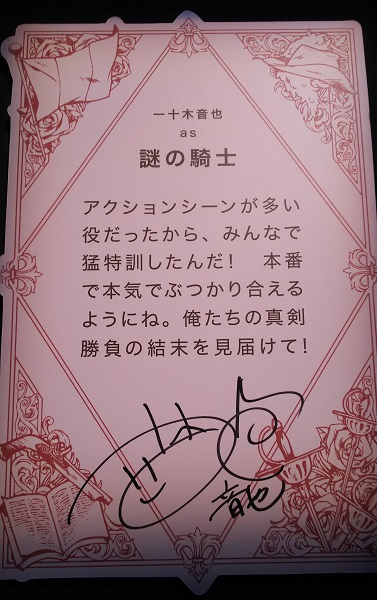 一十木音也
as
謎の騎士
アクションシーンが多い
役だったから、みんなで
猛特訓したんだ!　本番
で本気でぶつかり合える
ようにね。俺たちの真剣
勝負の結末を見届けて!
音也